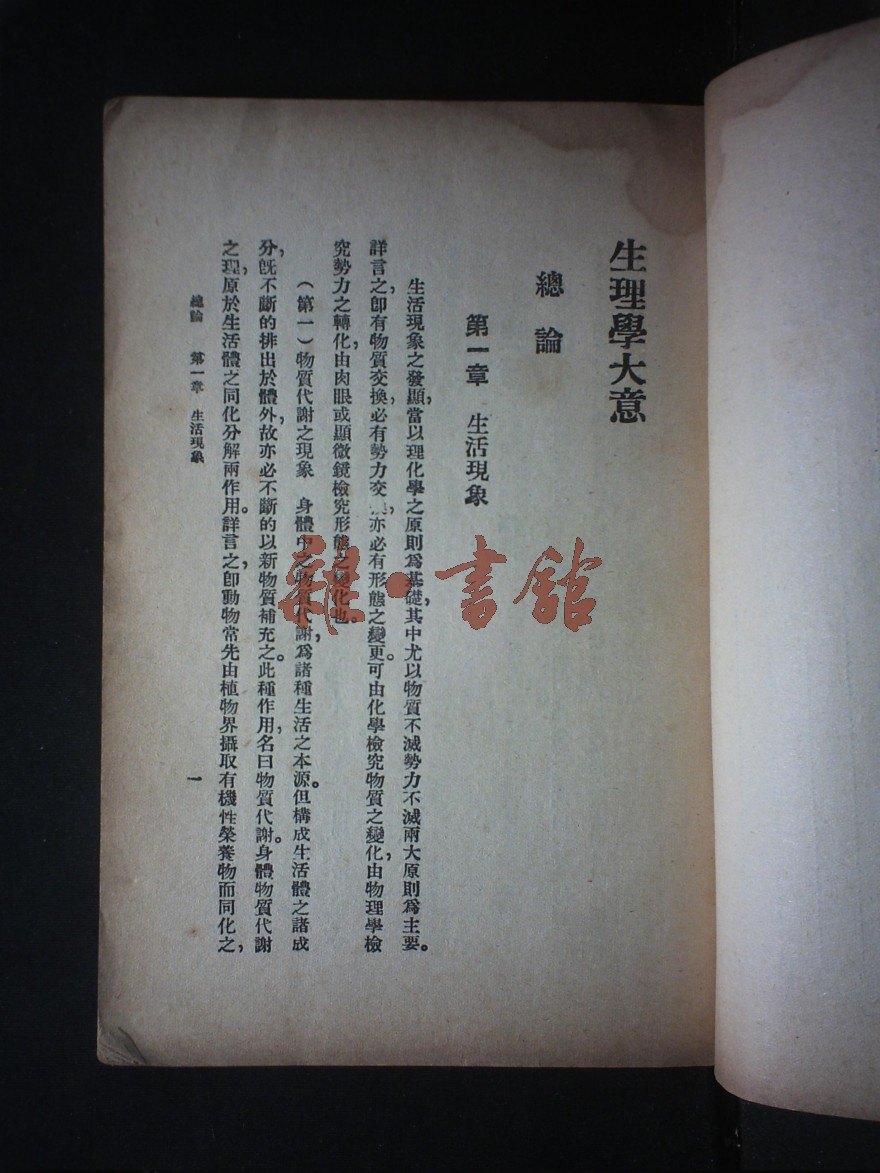 生理學大意
總論
第一章 生活現象
生活現象之發顯，當以理化學之原則爲基礎，其中尤以物質不滅勢力不滅兩大原則爲主要。
詳言之，卽有物質交換，必有勢力交，亦必有形態之變更。可由化學檢究物質之變化，由物理學檢
究勢力之轉化，由肉眼或顯微鏡檢究形態之變化也。
（第一）物質代謝之現象 身體中之物質代謝，爲諸種生活之本源。但構成生活體之諸成
分，旣不斷的排出於體外，故亦必不斷的以新物質補充之。此種作用，名曰物質代謝。身體物質代謝
之理，原於生活體之同化分解兩作用。詳言之，卽動物常先由植物界攝取有機性榮養物而同化之，
總論 第一章 生活現象
一
雜·書館